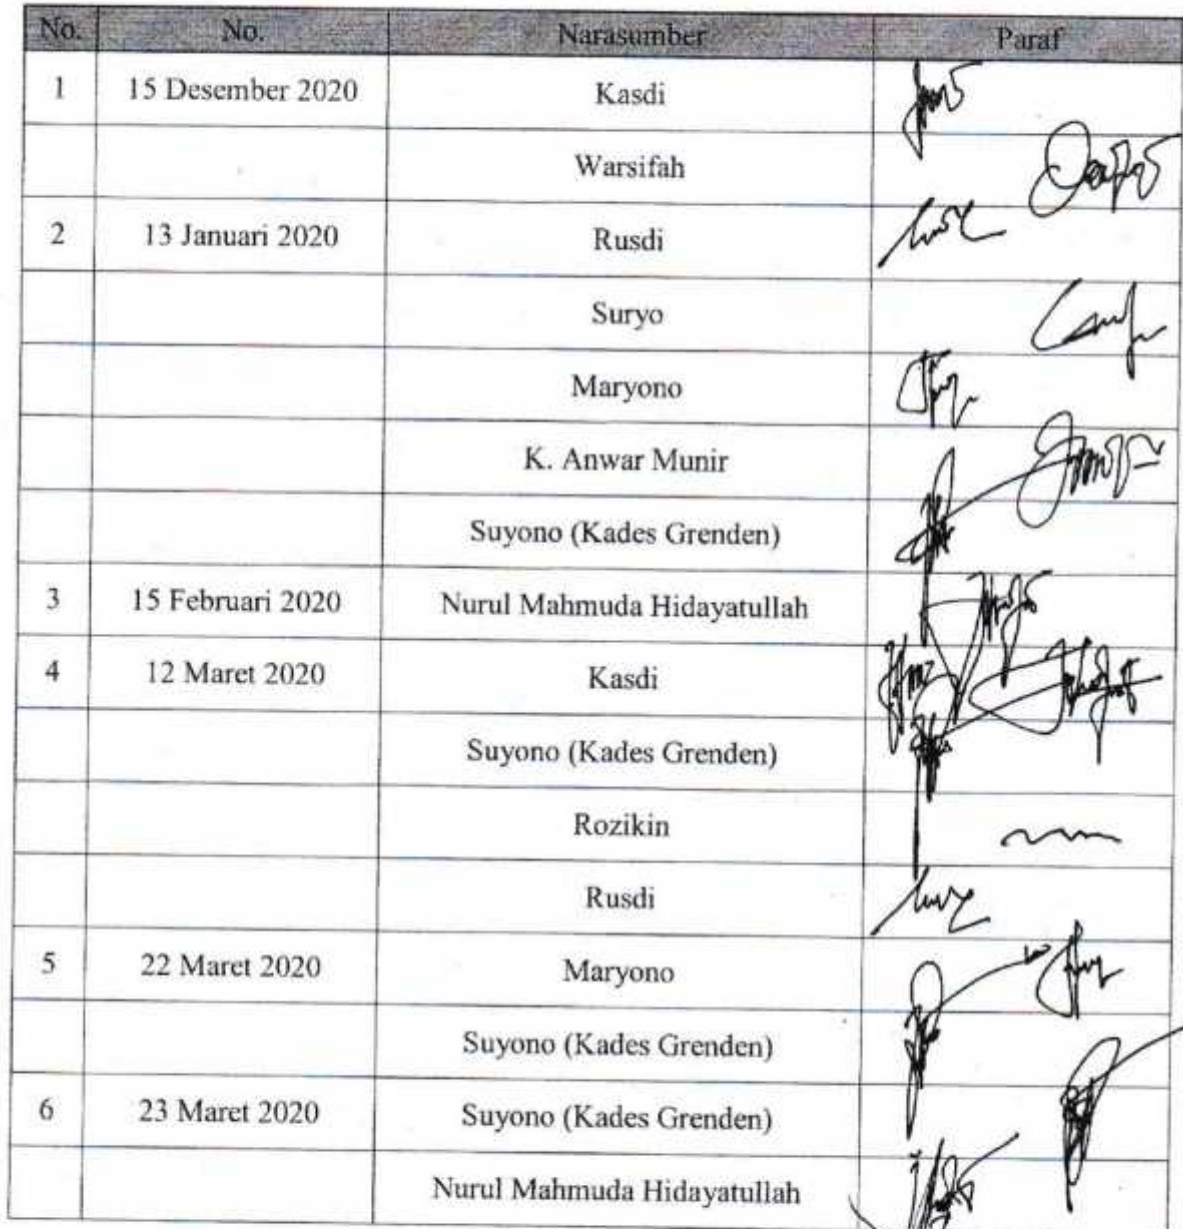 No. No. Narasumber Paraf
1 15 Desember 2020 Kasdi
Warsifah
2 13 Januari 2020 Rusdi
Suryo
Maryono
K. Anwar Munir
Suyono (Kades Grenden)
3 15 Februari 2020 Nurul Mahmuda Hidayatullah
4 12 Maret 2020 Kasdi
Suyono (Kades Grenden)
Rozikin
Rusdi
5 22 Maret 2020 Maryono
Suyono (Kades Grenden)
6 23 Maret 2020 Suyono (Kades Grenden)
Nurul Mahmuda Hidayatullah